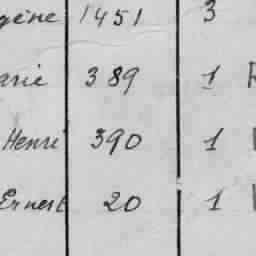 gène 1451 3
arie 389 1
Henri 390 1
Ernest 20 1